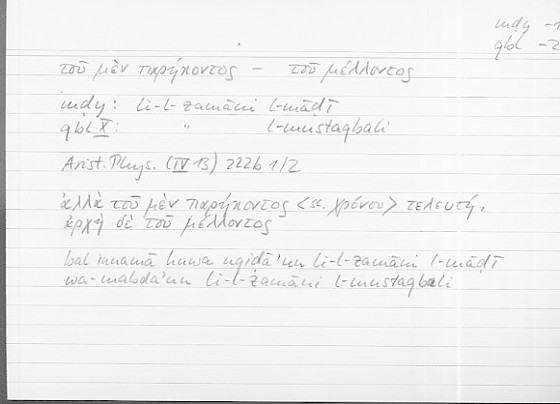 mdy -1
qbl -2
τοῦ μὲν παρήκοντος – τοῦ μέλλοντος
mdy: li-l-zamāni l-māḍī
qbl X: " l-mustaqbali
Arist. Phys. (IV 13) 222b 1/2
ἀλλὰ τοῦ μὲν παρήκοντος <sc. χρόνου> τελευτή,
ἀρχὴ δὲ τοῦ μέλλοντος
bal innamā huwa nqiḍā'un li-l-zamāni l-māḍī
wa-mabda'un li-l-zamāni l-mustaqbali